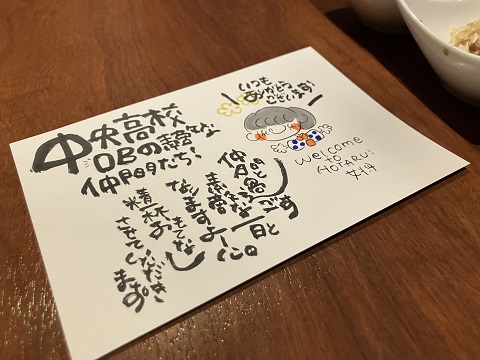 中央高校
OBの素敵な
仲間たち、
仲間と過ごす
素敵な一日と
なりますよー心。
精一杯おもてなし
させていただきます。
いつも
ありがとう
ございます!
welcome
to
HOTARU!